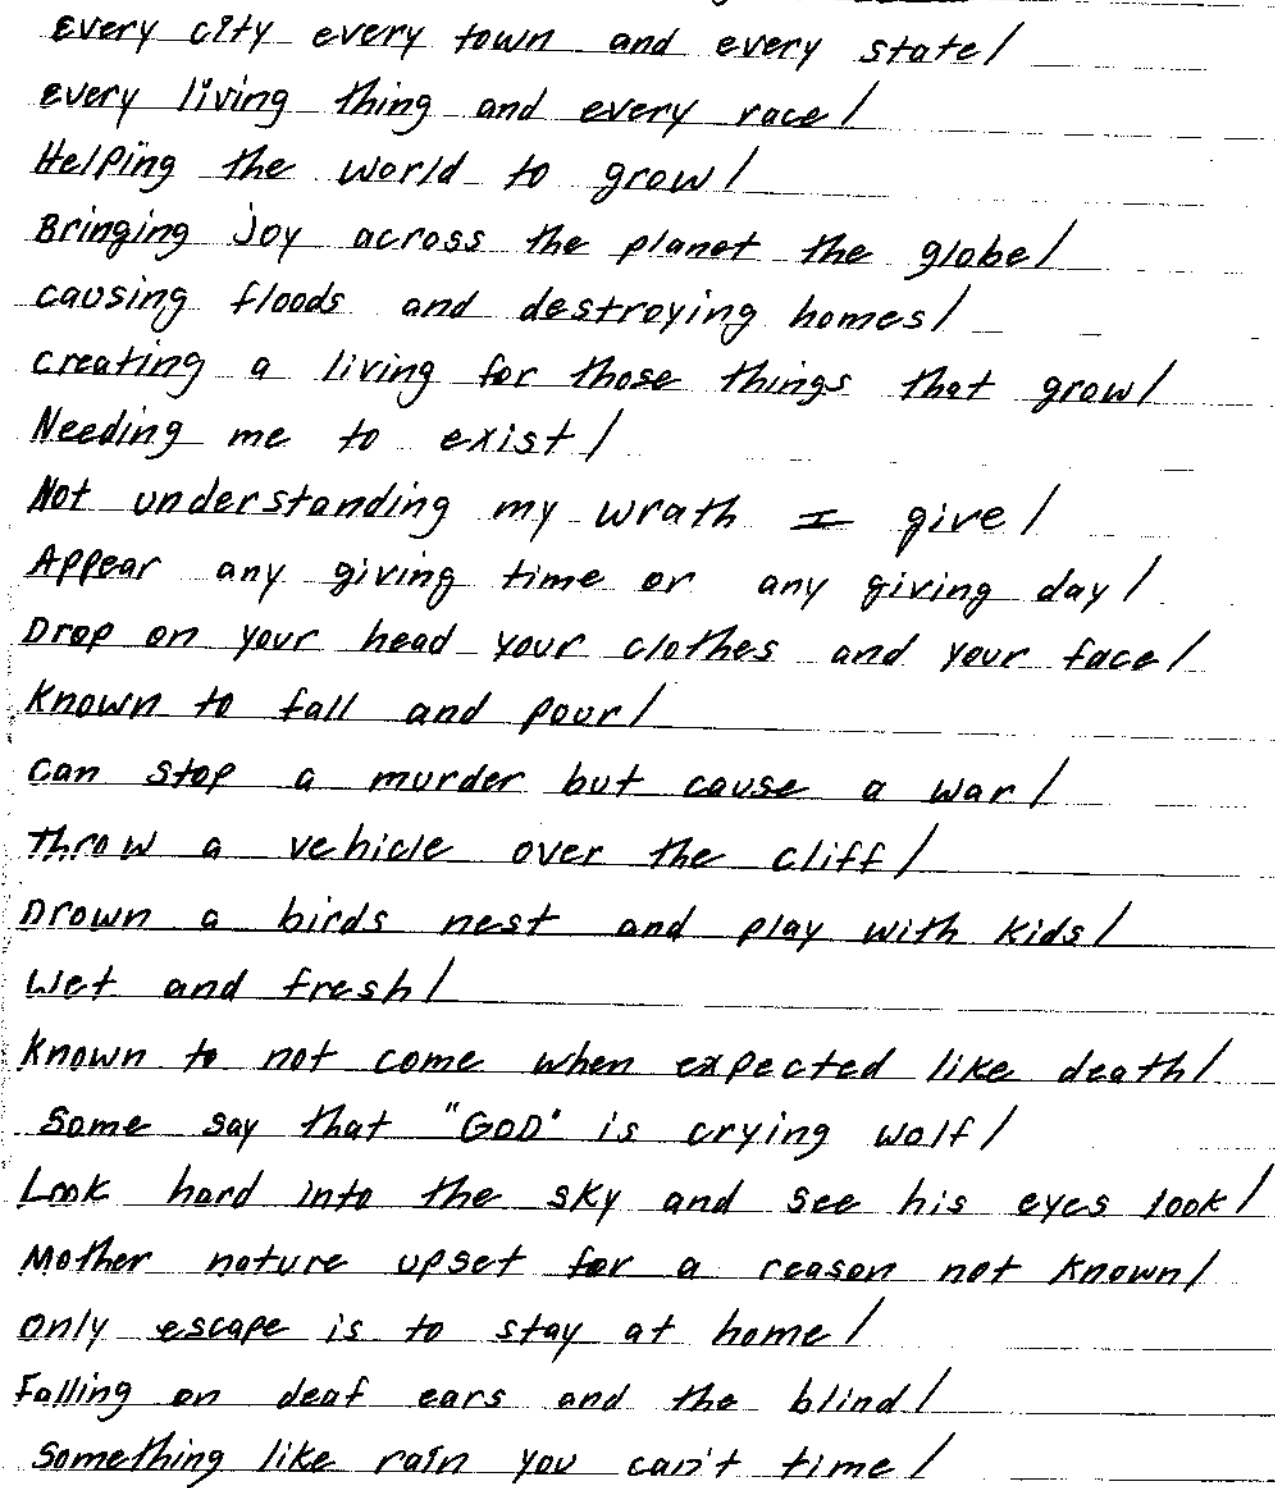 every city every town and every state/
every living thing and every race/
Helping the world to grow/
Bringing Joy across the planet the globe/
causing floods and destroying homes/
creating a living for those things that grow/
Needing me to exist/
Not understanding my wrath I give/
Appear any giving time or any giving day/
Drop on your head your clothes and your face/
Known to fall and pour/
Can stop a murder but cause a war/
Throw a vehicle over the cliff/
Drown a birds nest and play with kids/
Wet and fresh/
Known to not come when expected like death/
Some say that "GOD" is crying wolf/
Look hard into the sky and see his eyes look/
Mother nature upset for a reason not known/
Only escape is to stay at home/
Falling on deaf ears and the blind/
Something like rain you can't time/